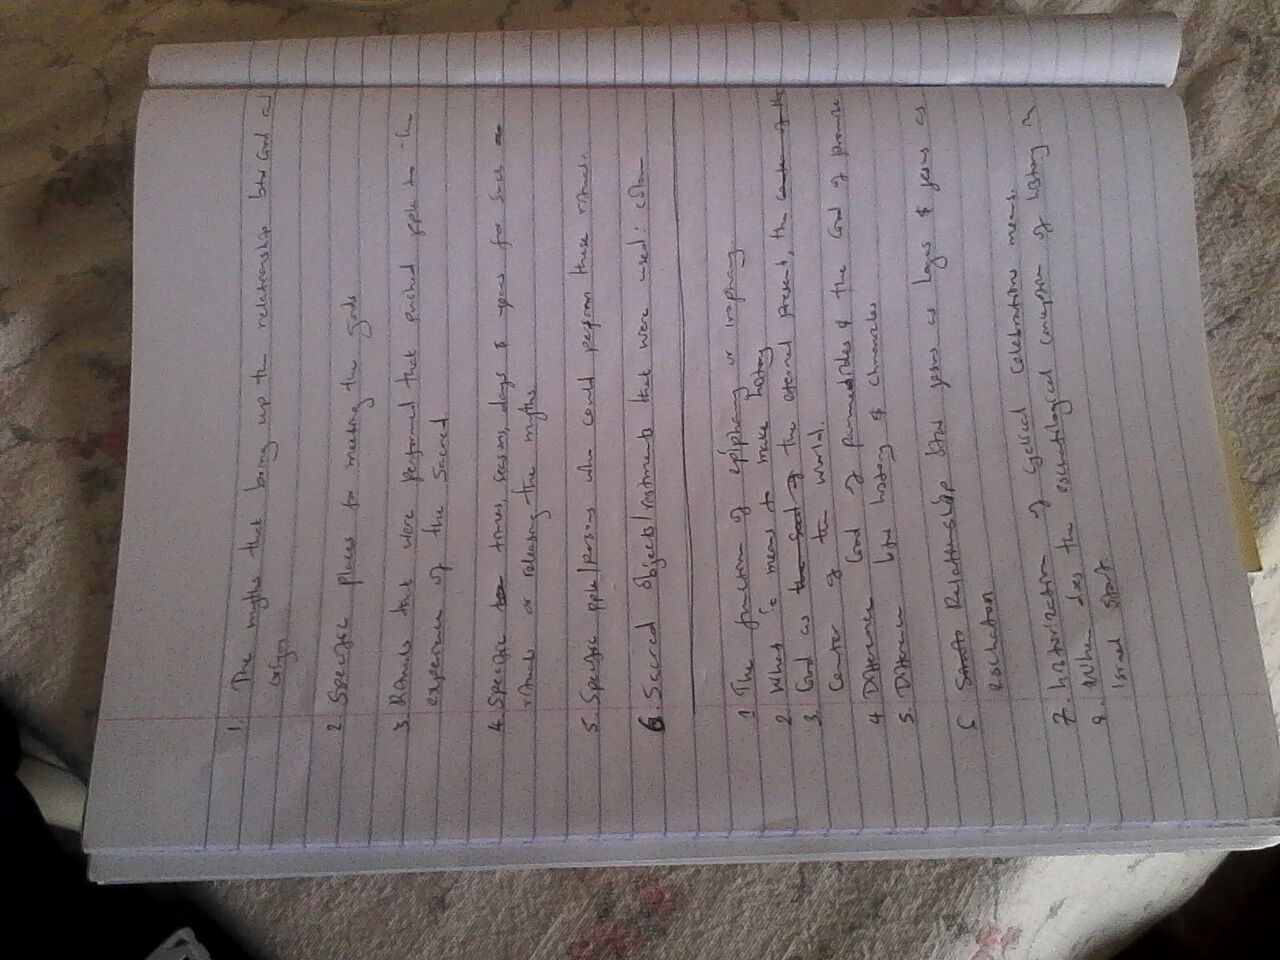 1. The myths that bring up the relationship btw God and
origin
2. Specific places for meeting the gods
3. Rituals that were performed that pushed pple to the
experience of the sacred
4. Specific times, seasons, days & years for such
rituals or releasing the myths.
5. Specific pple/persons who could perform these rituals.
6. Sacred objects/instruments that were used:
1 The function of epiphany or
2 What it means to make history
3. God as the God of the eternal present, the
Center of the world.
4 Difference God of & the God of promise
5. Difference btw history & chronicles
6 Relationship btw Jesus as logos & Jesus as
7. historization of cyclical celebrations means.
8. When does the eschatological conception of history in
Israel start